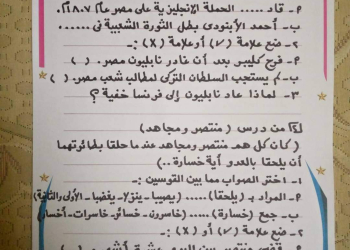 ٢- قاد ..... الحملة الانجليزية على مصر عام ١٨٠٧م.
ب- أحمد الأبنودي بطل الثورة الشعبية في ......
٢- ضع علامة (√) أو علامة (X) :-
٢- فرح كليبر بعد أن غادر نابليون مصر. ( )
ب- لم يستجب السلطان التركي لمطالب شعب مصر. ( )
٣- لماذا عاد نابليون إلى فرنسا خفية ؟
من درس ( منتصر ومجاهد )
( كان كل همّ منتصر ومجاهد عندما حلقتا بطائرتهما
أن يلحقا بالعدو أية خسارة .. )
١- اختر الصواب مما بين القوسين :-
٢- المراد بـ (يلحقا)..... (يصيبا - ينزلا - يغضبا - الأولى والثانية)
ب- جمع (خسارة) ..... (خاسرون - خسائر - خاسرات - أخسار)
٢- ضع علامة (√) أو (X) :-